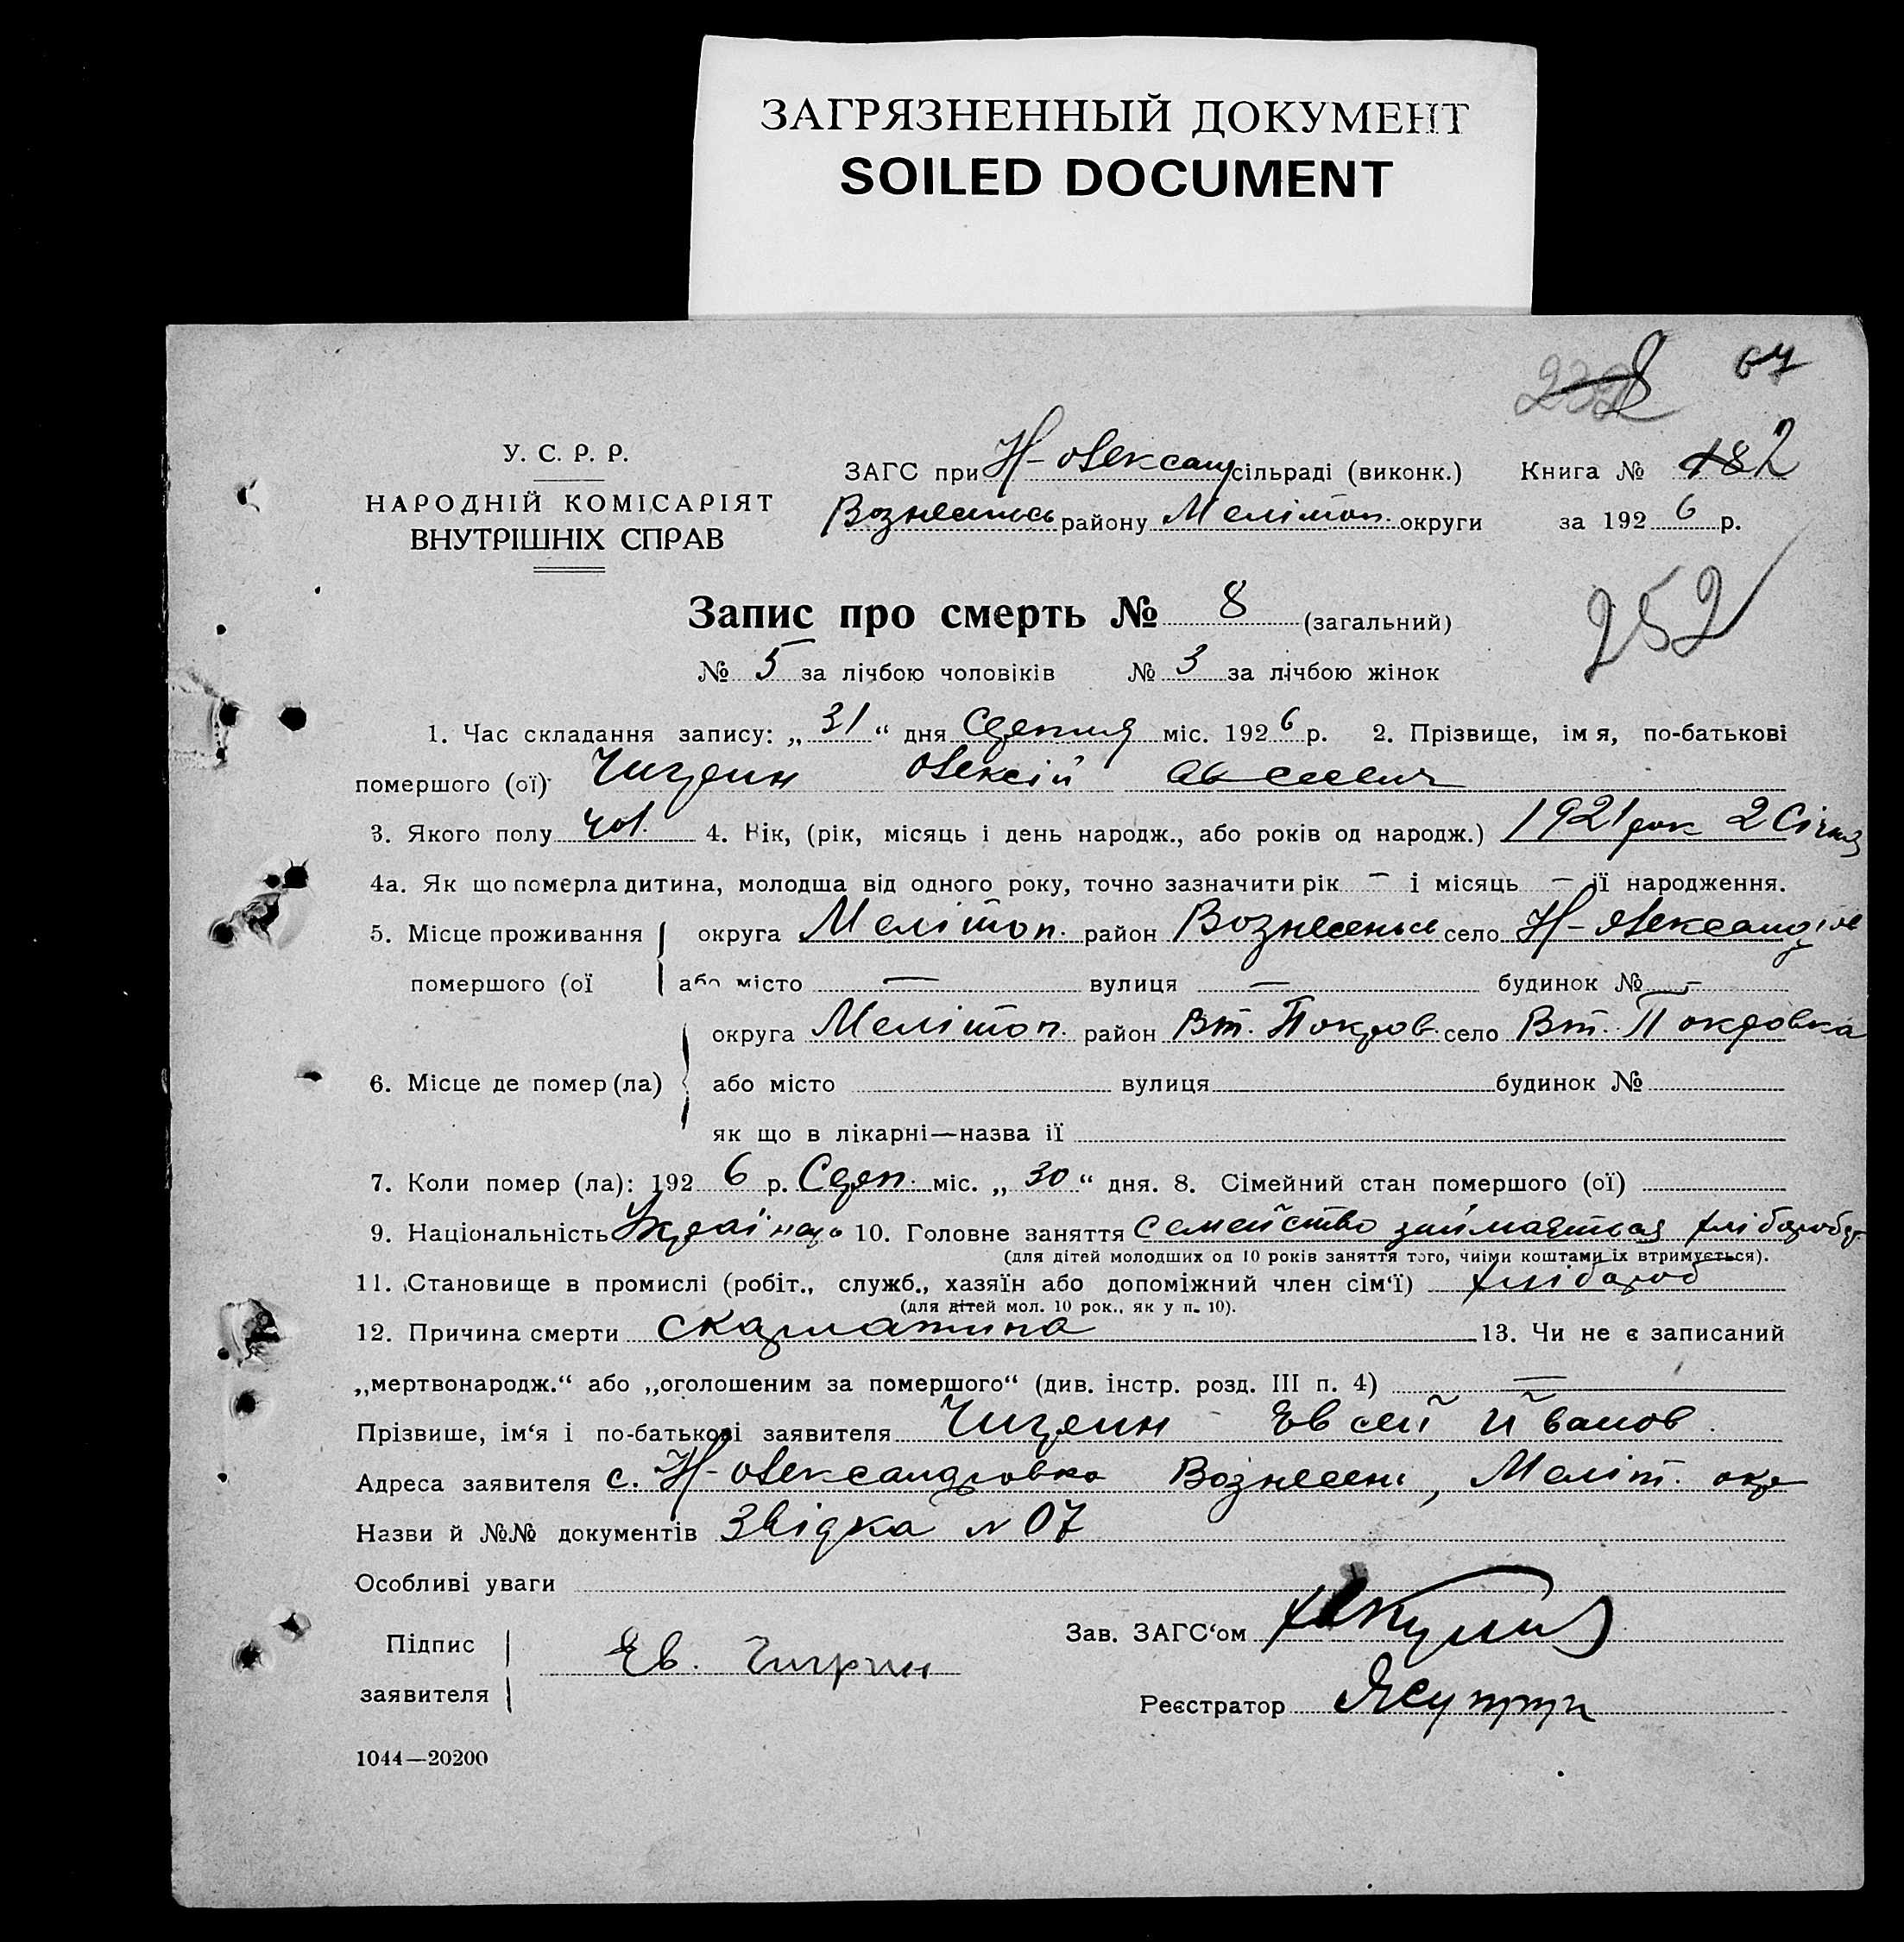 ЗАГРЯЗНЕННЫЙ ДОКУМЕНТ
SOILED DOCUMENT
67
232 8
У. С. Р. Р.
НАРОДНІЙ КОМІСАРІЯТ
ВНУТРІШНІХ СПРАВ
ЗАГС при Н-Олександ сільраді (виконк.) Книга № 182
Вознесенськ району Мелітоп. округи за 1926 р.
252
Запис про смерть № 8 (загальний)
№ 5 за лічбою чоловіків № 3 за лічбою жінок
1. Час складання запису: „31“ дня Серпня міс. 1926 р. 2. Прізвище, імя, по-батькові
помершого (ої) Чигрин Олексій Авсеевич
3. Якого полу чол. 4. Вік, (рік, місяць і день народж., або років од народж.) 1921 рок 2 Січня
4а. Як що померла дитина, молодша від одного року, точно зазначити рік — і місяць — її народження.
5. Місце проживання округа Мелітоп. район Вознесенськ село Н-Олександров
помершого (ої або місто — вулиця — будинок № —
округа Мелітоп. район Вт. Покров. село Вт. Покровка
6. Місце де помер (ла) або місто вулиця будинок №
як що в лікарні—назва ії
7. Коли помер (ла): 1926 р. Серп. міс. „30“ дня. 8. Сімейний стан помершого (ої)
9. Національність Українець 10. Головне заняття Семейство займається хлібороб
(для дітей молодших од 10 років заняття того, чиїми коштами їх втримується).
11. Становище в промислі (робіт., служб., хазяїн або допоміжний член сім‘ї) хлібороб
(для дітей мол. 10 рок., як у п. 10).
12. Причина смерти скарлатина 13. Чи не є записаний
„мертвонародж.“ або „оголошеним за помершого“ (див. інстр. розд. III п. 4) —
Прізвише, ім‘я і по-батькові заявителя Чигрин Евсей Иванов
Адреса заявителя с. Н-Олександровка Вознесен, Меліт. окр
Назви й №№ документів Звідка № 07
Особливі уваги
Підпис
заявителя Ев. Чигрин
Зав. ЗАГС‘ом
Реєстратор
1044—20200